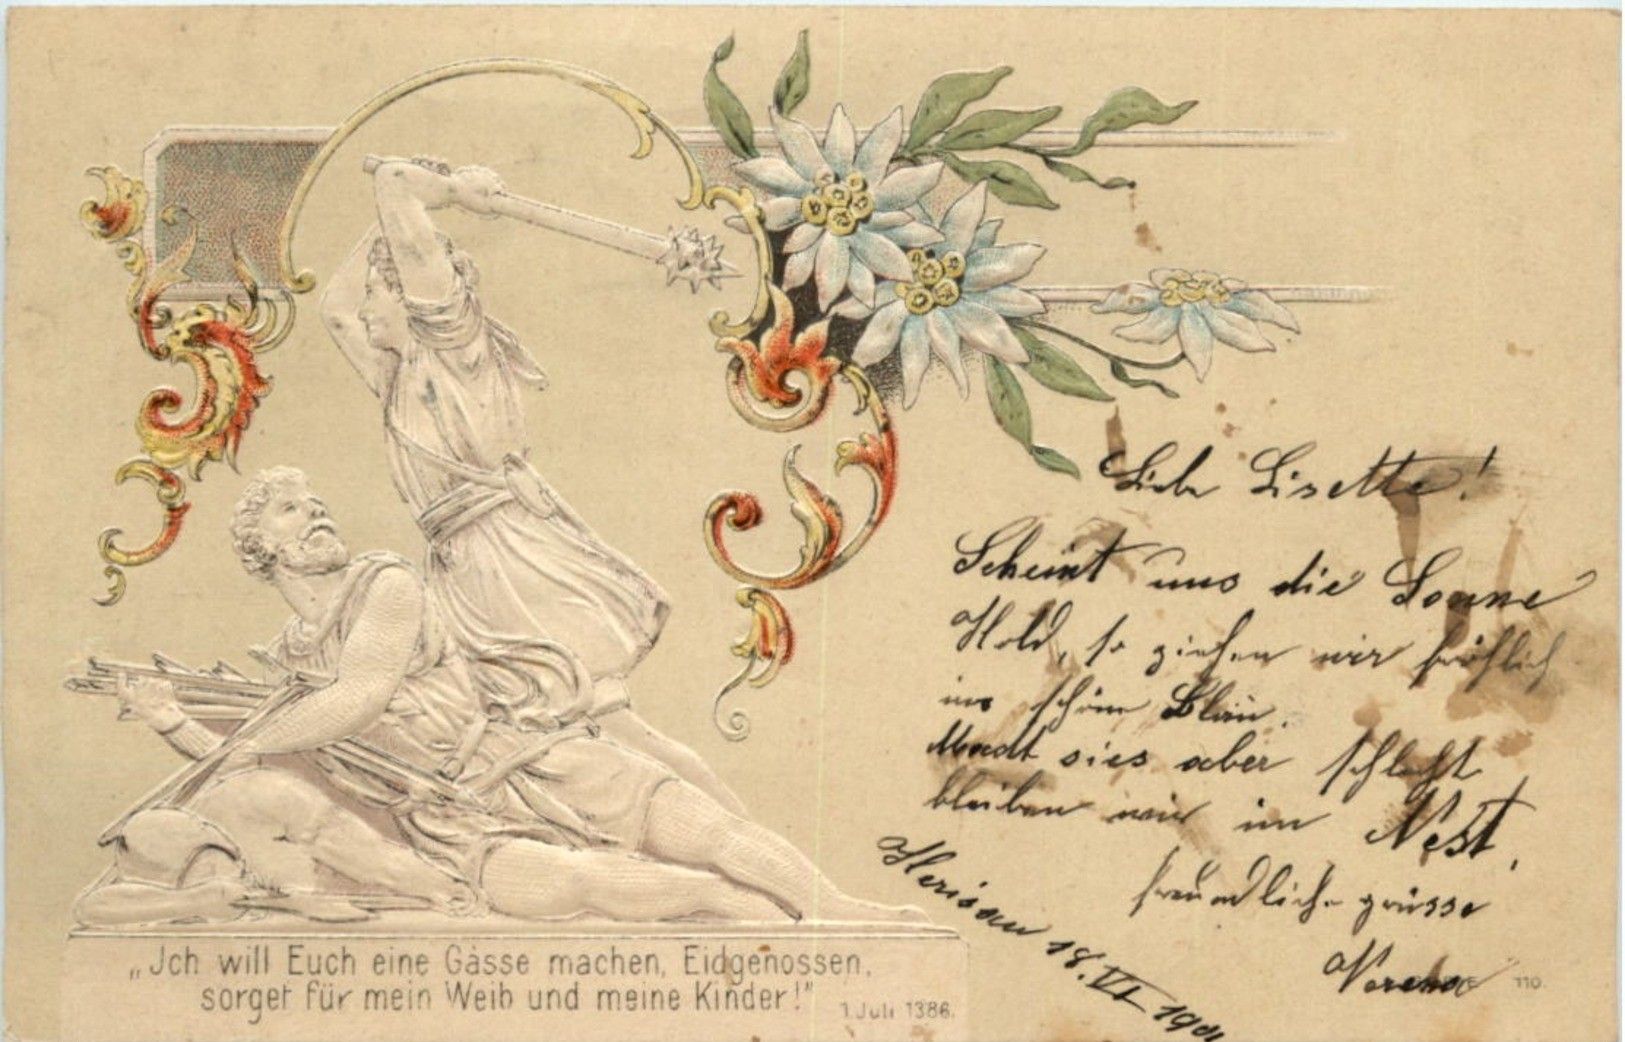 Liebe Lisette!
Scheint uns die Sonne
Hold, so ziehen wir fröhlich
ins schöne Blau.
Macht sies aber schlecht
bleiben wir im Nest.
freundliche grüsse
Verena
Herisau 18. VI 1901
„Jch will Euch eine Gasse machen, Eidgenossen,
sorget für mein Weib und meine Kinder!"
1. Juli 1386.
110.